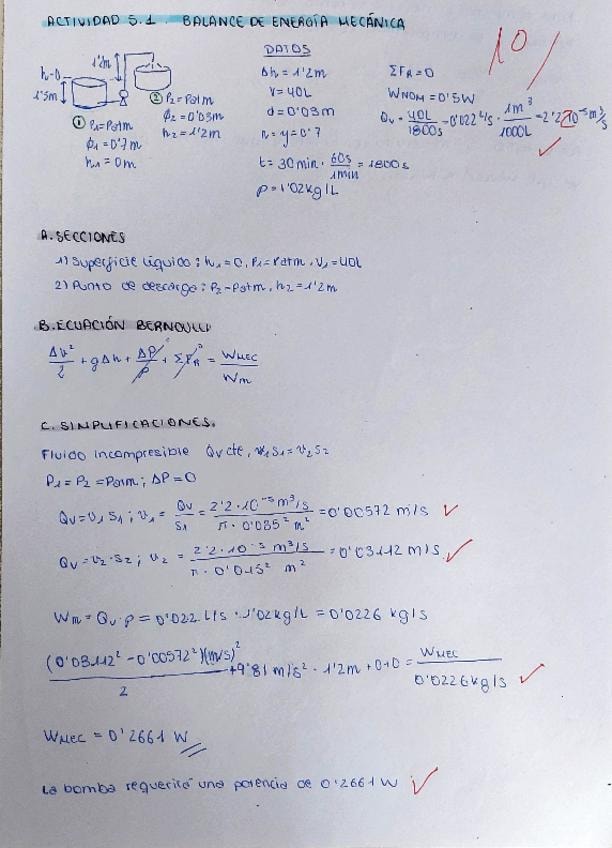 ACTIVIDAD 5.1. BALANCE DE ENERGÍA MECÁNICA
10
DATOS
1'2m
h=0
1'5m
① P₁=Patm
ϕ₁=0'7m
h₁=0m
② P₂=Patm
ϕ₂=0'03m
h₂=1'2m
Δh=1'2m
V=40L
d=0'03m
n=y=0'7
t=30min·60s/1min=1800s
ρ=1'02kg/L
ΣFR=0
WNOM=0'5W
Qv=40L/1800s=0'022 L/s·1m³/1000L=2'2·10⁻⁵m³/s
A. SECCIONES
1) Superficie líquido: h₁=0, P₁=Patm, V₁=40L
2) Punto de descarga: P₂=Patm, h₂=1'2m
B. ECUACIÓN BERNOULLI
Δv²/2 + gΔh + ΔP/ρ + ΣFR = WMEC/Wm
C. SIMPLIFICACIONES.
Fluido incompresible Qv cte, v₁S₁=v₂S₂
P₁=P₂=Patm; ΔP=0
Qv=v₁S₁; v₁=Qv/S₁=2'2·10⁻⁵m³/s/π·0'035²m²=0'00572 m/s
Qv=v₂·S₂; v₂=2'2·10⁻⁵ m³/s/π·0'015² m²=0'03112 m/s
Wm=Qv·ρ=0'022 L/s·1'02kg/L=0'0226 kg/s
(0'03112²-0'00572²)(m/s)²/2+9'81 m/s²·1'2m+0+0=WMEC/0'0226kg/s
WMEC=0'2661 W
La bomba requerirá una potencia de 0'2661 W